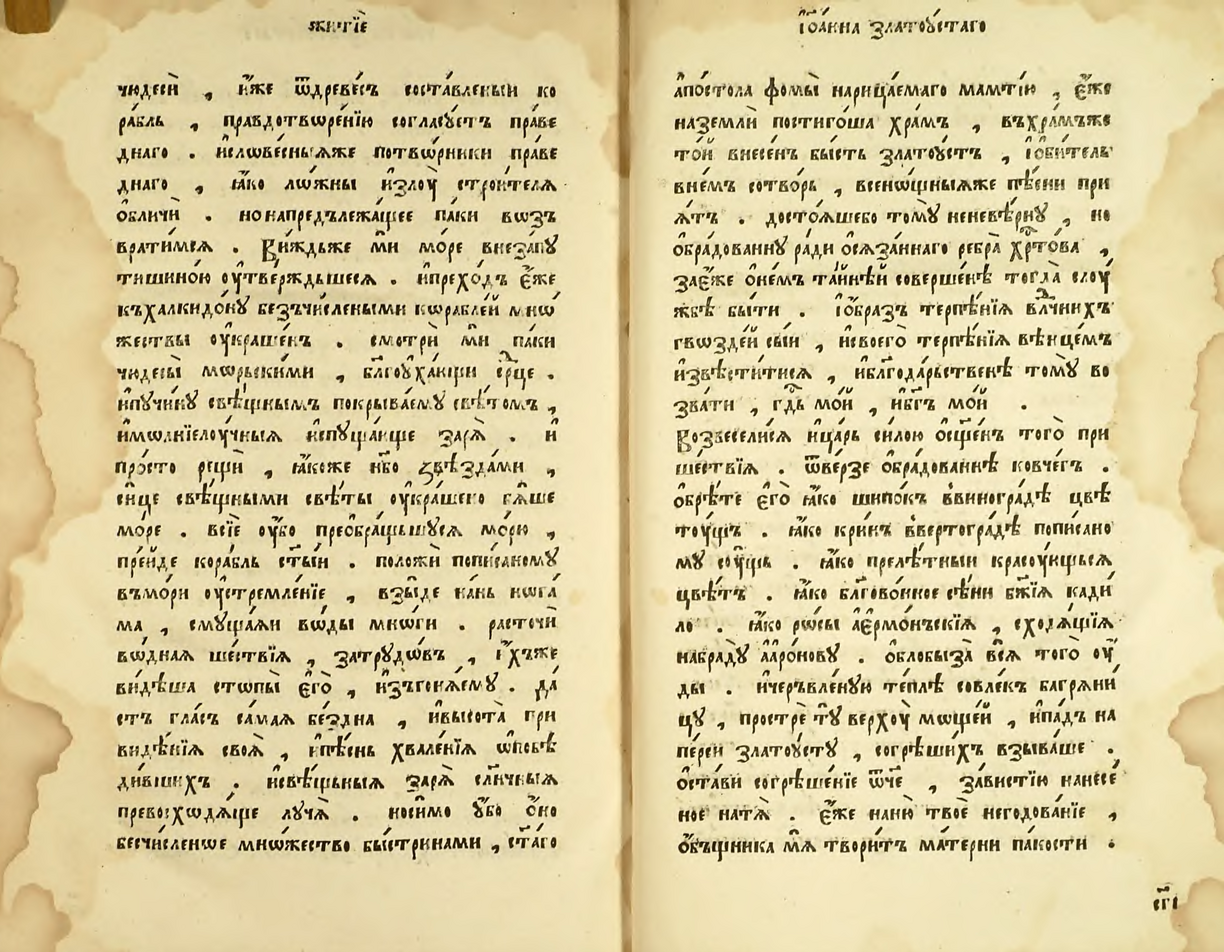 житїѐ
чюдесѝ , и҆́же ѿдреве́съ соста́вленыи ко
ра́бль , правдотвѡре́нїю согласꙋ́етъ пра́ве
днаго . и҆слѡве́сныѧже потвѡ́рники пра́ве
днаго , ꙗ҆́ко лѡ́жны и҆злоу̀ строи́телѧ
ѡ҆бличѝ . нонапредълежа́щее па́ки вѡзъ
врати́мсѧ . Ви́ждьже мѝ мо́ре внеза́пꙋ
тишино́ю оу҆тве́рждьшеесѧ . и҆прехо́дъ є҆́же
къхалкидо́нꙋ безъчи́слеными кѡрабле́й мнѡ́
жествы оу҆кра́шенъ . смотрѝ мѝ па́ки
чюдесы̀ мѡрьски́ми , бл҃гоꙋха́ющи ср҃це .
и҆пꙋчи́нꙋ свѣ́щнымъ покрыва́емꙋ свѣ́томъ ,
и҆мѡлнїелоу́чныѧ и҆спꙋща́юще зарѧ̀ . и҆
про́сто рещѝ , ꙗ҆́коже нб҃о ѕвѣзда́ми ,
си́це свѣ́щными свѣ́ты оу҆кра́шено бѧ́ше
мо́ре . всїе оу҆́бо преѡбра́щьшꙋсѧ мо́рю ,
пре́йде кора́бль ст҃ы́и . положѝ пописа́номꙋ
въмо́ри оу҆стремле́нїе , взы́де на́нь нѡга́
ма , смꙋща́ѧи вѡ́ды мнѡ́ги . расточѝ
вѡ́днаѧ ше́ствїѧ , затрꙋдѡ́въ , і҆́хъже
ви́дѣша стѡпы̀ є҆гѡ̀ , и҆зъгонѧ́емꙋ . да
стъ гла́съ са́маѧ бе́здна , и҆высота̀ при
видѣ́нїѧ своѧ̀ , и҆пѣ́снь хвале́нїѧ ѡ҆повѣ́
дившихъ . и҆свѣ́щьныѧ зарѧ̀ сл҃нчныѧ
превосхѡдѧ́ще лꙋчѧ̀ . носи́мо ꙋ҆́бо ѻ҆́но
бесчи́сленѡе мнѡ́жество быстри́нами , ст҃а́го
і҆ѡа́нна златоꙋ́стаго
а҆по́стола фомы̀ нарица́емаго мамті́ю , є҆́же
наземлѝ пости́гоша хра́мъ , въхра́мъже
то́й внесе́нъ бы́сть златоꙋ́стъ , і҆ѻби́тель
вне́мъ сотво́рь , всенѡ́щныѧже пѣ́сни при
ѧ́тъ . досто́ѧшебо то́мꙋ неневѣ́рнꙋ , но
ѡ҆бра́дованнꙋ ра́ди ѡ҆сѧза́ннаго ребра̀ хр҃то́ва ,
заѐже ѻ҆не́мъ та́йнѣй соверше́нѣ тогда̀ слоу́
жбѣ бы́ти . і҆ѡ́бразъ терпѣ́нїѧ вл҃чнихъ
гвѡзде́й сы́и , и҆своегѡ̀ терпѣ́нїѧ вѣнце́мъ
и҆звѣсти́тисѧ , и҆благода́рьственѣ то́мꙋ во
зва́ти , гд҃ь мо́й , и҆бг҃ъ мо́й .
Возвесели́сѧ и҆ца́рь си́лою ѡ҆сщ҃е́нъ того̀ при
ше́ствїѧ . ѿве́рзе ѡ҆бра́дованнѣ ковче́гъ .
ѡ҆брѣ́те є҆го̀ ꙗ҆́ко шипо́къ ввиногра́дѣ цвѣ
тоу́щъ . ꙗ҆́ко кри́нъ ввертогра́дѣ пописано
мꙋ соу́щь . ꙗ҆́ко прелѣ́тныи красоу́ющьсѧ
цвѣ́тъ . ꙗ҆́ко бл҃гово́нное сѣ́ни бж҃їѧ кади
ло . ꙗ҆́ко рѡ́сы а҆ермѡ́нъскїѧ , сходѧ́щїѧ
набрадꙋ̀ а҆арѡ́новꙋ . ѡ҆блобыза̀ всѧ̀ того̀ оу҆́
ды . и҆черъвле́нꙋю те́плѣ совле́къ багрѧни́
цꙋ , прострѐ тꙋ̀ верхоу̀ мѡще́й , и҆па́дъ на
пе́рси златоꙋ́стꙋ , согрѣши́хъ взыва́ше .
ѡ҆ста́ви согрѣше́нїе ѿч҃е , за́вистїю нанесе́
ное натѧ̀ . є҆́же наню̀ твоѐ негодова́нїе ,
ѻ҆́бъщника мѧ̀ твори́тъ ма́терни па́кости .